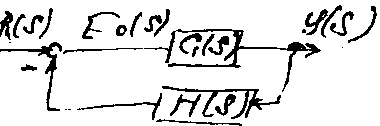 R(S) E0(S) G(S) Y(S)
-
H(S)